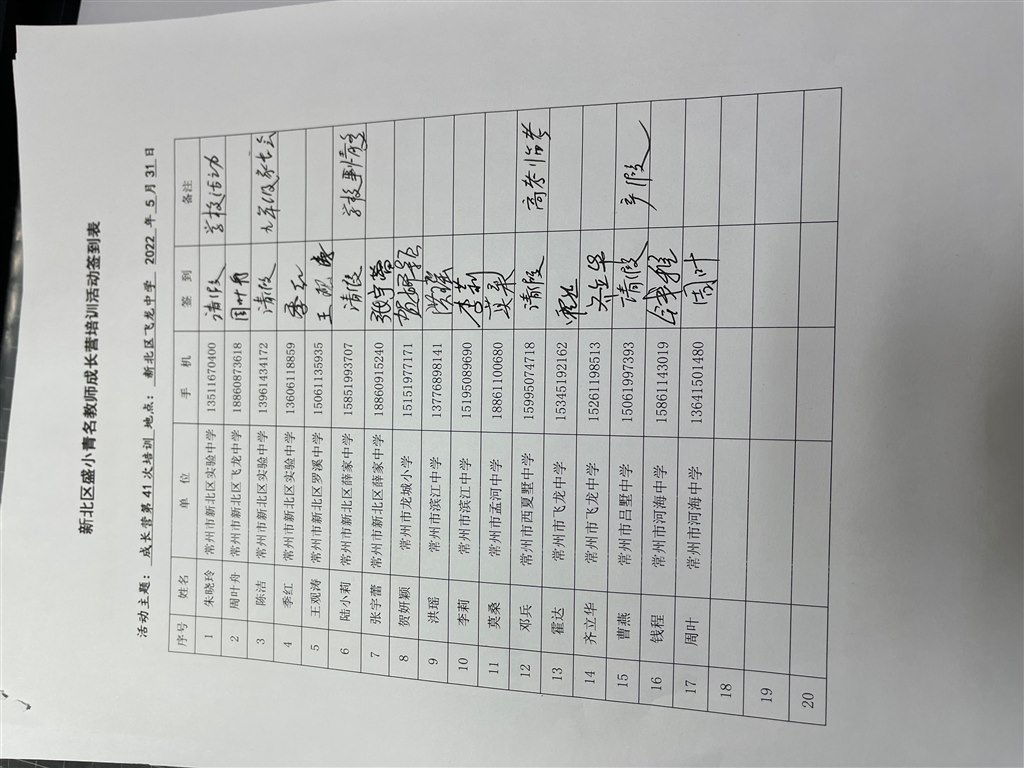 新北区盛小青名教师成长营培训活动签到表
活动主题： 成长营第 41 次培训 地点： 新北区飞龙中学 2022 年 5 月 31 日
序号 姓名 单 位 手 机 签 到 备注
1 朱晓玲 常州市新北区实验中学 13511670400 请假 学校活动
2 周叶舟 常州市新北区飞龙中学 18860873618 周叶舟
3 陈洁 常州市新北区实验中学 13961434172 请假 九年级家长会
4 季红 常州市新北区实验中学 13606118859 季红
5 王观涛 常州市新北区罗溪中学 15061135935 王观涛
6 陆小莉 常州市新北区薛家中学 15851993707 请假 学校事情多
7 张宇蕾 常州市新北区薛家中学 18860915240 张宇蕾
8 贺妍颖 常州市龙城小学 15151977171 贺妍颖
9 洪瑶 常州市滨江中学 13776898141 洪瑶
10 李莉 常州市滨江中学 15195089690 李莉
11 莫桑 常州市孟河中学 18861100680 莫桑
12 邓兵 常州市西夏墅中学 15995074718 请假 高考监考
13 霍达 常州市飞龙中学 15345192162 霍达
14 齐立华 常州市飞龙中学 15261198513 齐立华
15 曹燕 常州市吕墅中学 15061997393 请假 产假
16 钱程 常州市河海中学 15861143019 钱程
17 周叶 常州市河海中学 13641501480 周叶
18
19
20